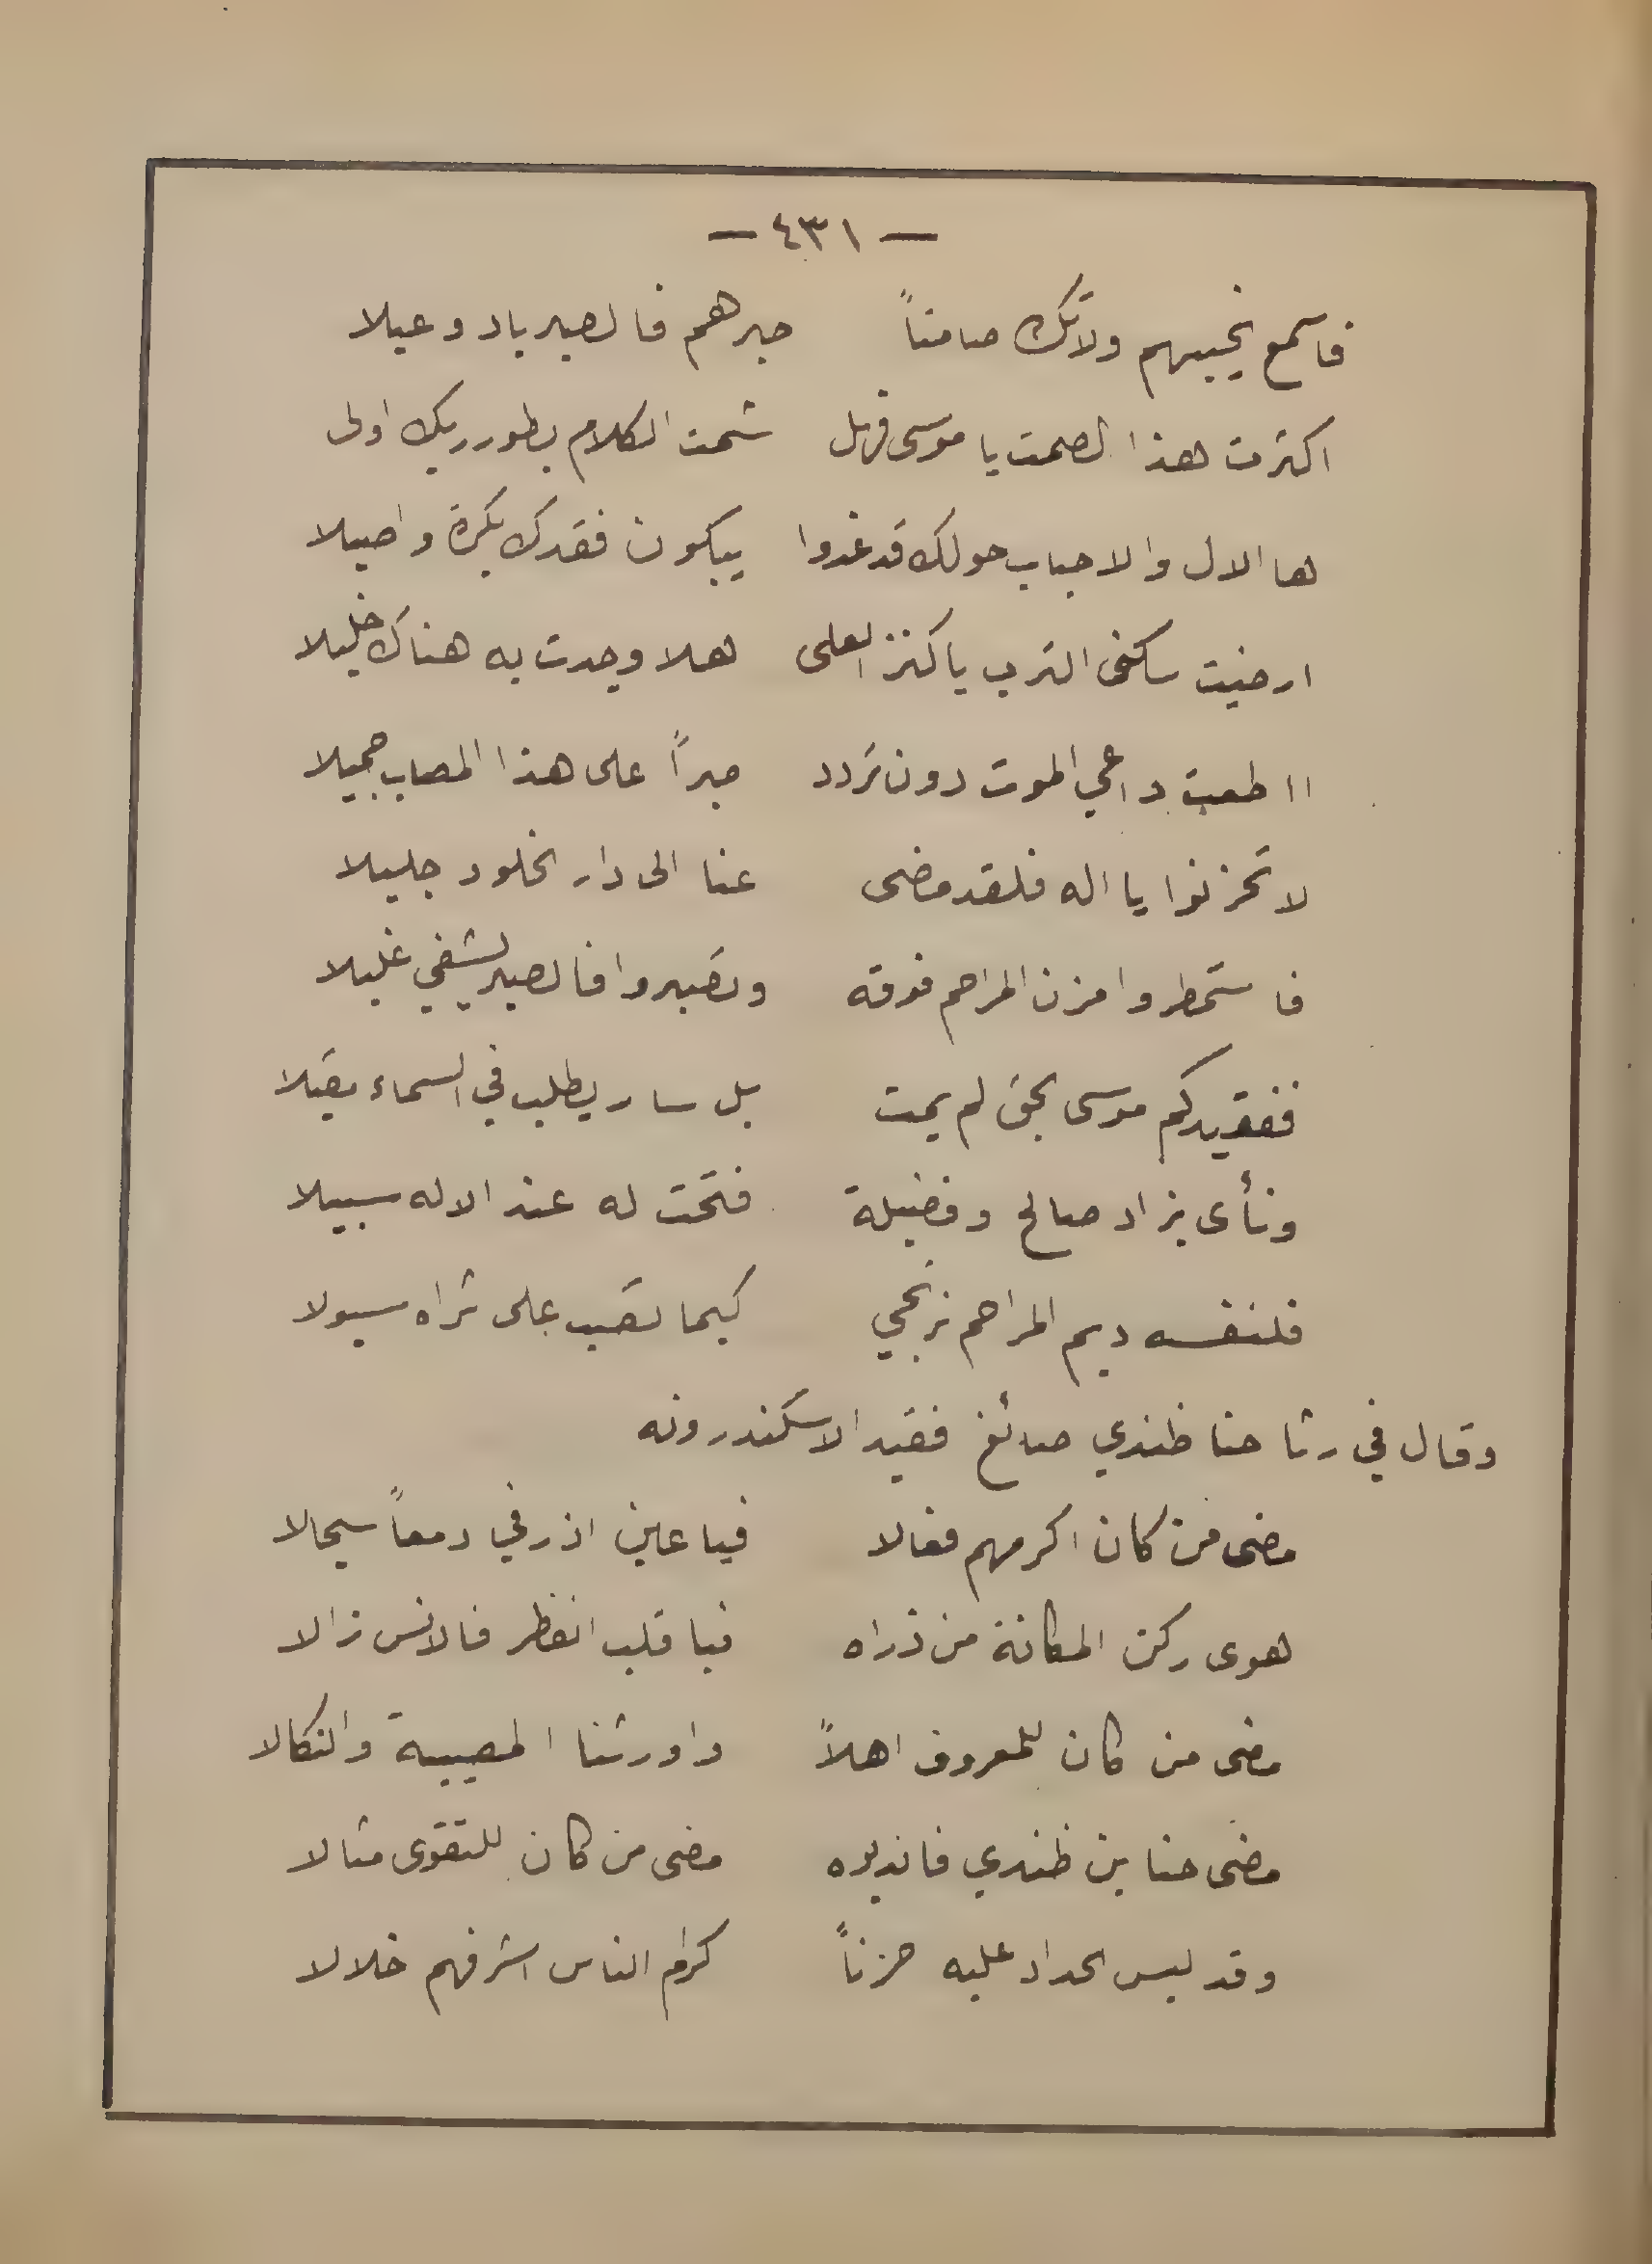 — ٤٣١ —
فاسمع نحيبهم ولا تك صامتاً صبرهم فالصبر باد وعيلا
اكثرت هذا الصمت يا موسى فهل شمت الكلام بطور ربك اولى
ها الال والاحباب حولك قد غدوا يبكون فقدك بكرة واصيلا
ارضيت سكنى الترب يا كنز العلى هلا وجدت به هناك خليلا
ااطعت داعي الموت دون تردد صبراً على هذا المصاب جميلا
لا تحزنوا يا اله فلقد مضى عنا الى دار الخلود جليلا
فاستمطروا مزن المراحم فوقه وتصبروا فالصبر يشفي غليلا
ففقيدكم موسى بحق لم يمت بل سار يطلب في السماء مقيلا
ونأى بزاد صالح وفضيلة فتحت له عند الاله سبيلا
فلنفسه ديم المراحم نرتجي كيما تصب على ثراه سيولا
وقال في رثا حنا ظندي صائغ فقيد الاسكندرونه
مضى من كان اكرمهم فعالا فيا عين اذرفي دمعاً سجالا
هوى ركن المكانة من ذراه فيا قلب انفطر فالانس زالا
مضى من كان للمعروف اهلاً واورثنا المصيبة والنكالا
مضى حنا بن ظندي فاندبوه مضى من كان للتقوى مثالا
وقد لبس الحداد عليه حزناً كرام الناس اشرفهم خلالا